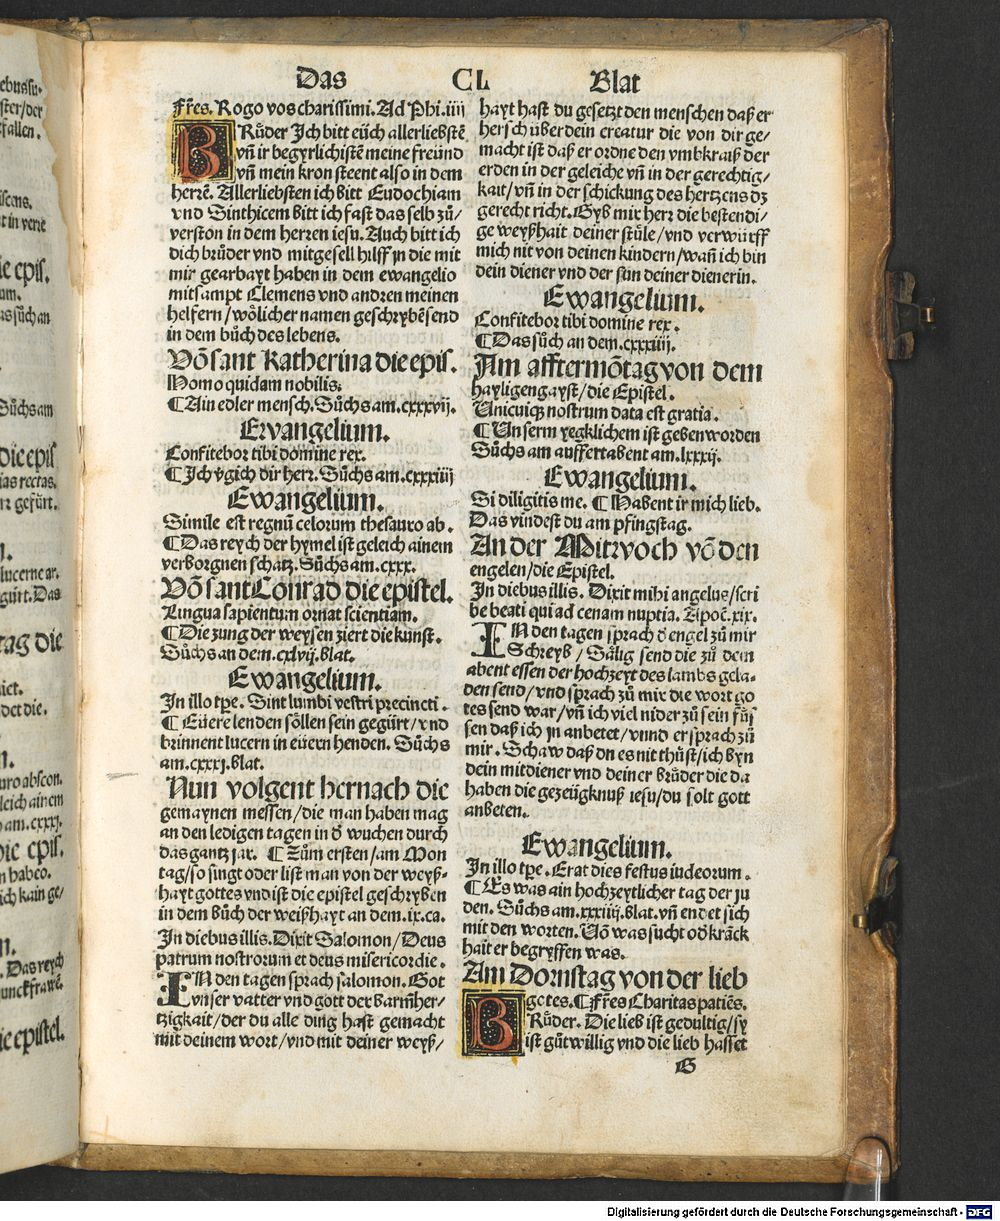 Das CL Blat
Fr̃es. Rogo vos charissimi. Ad Phi. iiii
BRůder Jch bitt eüch allerliebstẽ
vñ ir begyrlichistẽ meine freünd
vñ mein kron steent also in dem
herrẽ. Allerliebsten ich bitt Eudochiam
vnd Sinthicem bitt ich fast das selb zů/
verston in dem herren iesu. Auch bitt ich
dich brůder vnd mitgesell hilff jn die mit
mir gearbayt haben in dem ewangelio
mitsampt Clemens vnd andren meinen
helfern/wölicher namen geschrybẽ send
in dem bůch des lebens.
Võ sant Katherina die epis.
Homo quidam nobilis.
¶ Ain edler mensch. Sůchs am. cxxxvij.
Ewangelium.
Confitebor tibi domine rex.
¶ Jch v̾gich dir herr. Sůchs am. cxxxiiij
Ewangelium.
Simile est regnũ celorum thesauro ab.
¶ Das reych der hymel ist geleich ainem
verborgnen schatz. Sůchs am. cxxx.
Võ sant Conrad die epistel.
Lingua sapientum ornat scientiam.
¶ Die zung der weysen ziert die kunst.
Sůchs an dem. cxlvij. blat.
Ewangelium.
In illo tp̃e. Sint lumbi vestri precincti.
¶ Eüere lenden söllen sein gegürt/vnd
brinnent lucern in eüern henden. Sůchs
am. cxxxj. blat.
Nun volgent hernach die
gemaynen messen/die man haben mag
an den ledigen tagen in d̾ wuchen durch
das gantz jar. ¶ Zům ersten/am Mon
tag/so singt oder list man von der weyß⸗
hayt gottes vnd ist die epistel geschryben
in dem bůch der weißhayt an dem. ix. ca.
In diebus illis. Dixit Salomon/Deus
patrum nostrorum et deus misericordie.
IN den tagen sprach salomon. Got
vnser vatter vnd gott der barmher⸗
tzigkait/der du alle ding hast gemacht
mit deinem wort/vnd mit deiner weyß/
hayt hast du gesetzt den menschen daß er
hersch über dein creatur die von dir ge/
macht ist daß er ordne den vmbkraiß der
erden in der geleiche vñ in der gerechtig/
kait/vñ in der schickung des hertzens dz
gerecht richt. Gyb mir herr die bestendi/
ge weyßhait deiner stüle/vnd verwürff
mich nit von deinen kindern/wañ ich bin
dein diener vnd der sun deiner dienerin.
Ewangelium.
Confitebor tibi domine rex.
¶ Das sůch an dem. cxxxiiij.
Am afftermõtag von dem
hayligen gayst/die Epistel.
Unicuiqꝫ nostrum data est gratia.
¶ Unserm yegklichem ist geben worden
Sůchs am auffertabent am. lxxxij.
Ewangelium.
Si diligitis me. ¶ Habent ir mich lieb.
Das vindest du am pfingstag.
An der Mitwoch võ den
engelen/die Epistel.
In diebus illis. Dixit mihi angelus/scri
be beati qui ad cenam nuptia. Apoc̃. xix.
IN den tagen sprach d̾ engel zů mir
Schreyb/Sälig send die zů dem
abent essen der hochzeyt des lambs gela⸗
den send/vnd sprach zů mir die wort go
tes send war/vñ ich viel nider zů sein füs̃
sen daß ich jn anbetet/vnnd er sprach zů
mir. Schaw daß du es nit thüst/ich byn
dein mitdiener vnd deiner brůder die da
haben die gezeügknuß iesu/du solt gott
anbeten.
Ewangelium.
In illo tp̃e. Erat dies festus iudeorum.
¶ Es was ain hochzeytlicher tag der ju
den. Sůchs am. xxxiiij. blat. vñ endet sich
mit den worten. Võ was sucht od̾ kräck
hait er begryffen was.
Am Dornstag von der lieb
gotes. ¶ Fr̃es Charitas patiẽs.
BRůder. Die lieb ist gedultig/sy
ist gůtwillig vnd die lieb hasset
G
Digitalisierung gefördert durch die Deutsche Forschungsgemeinschaft - DFG